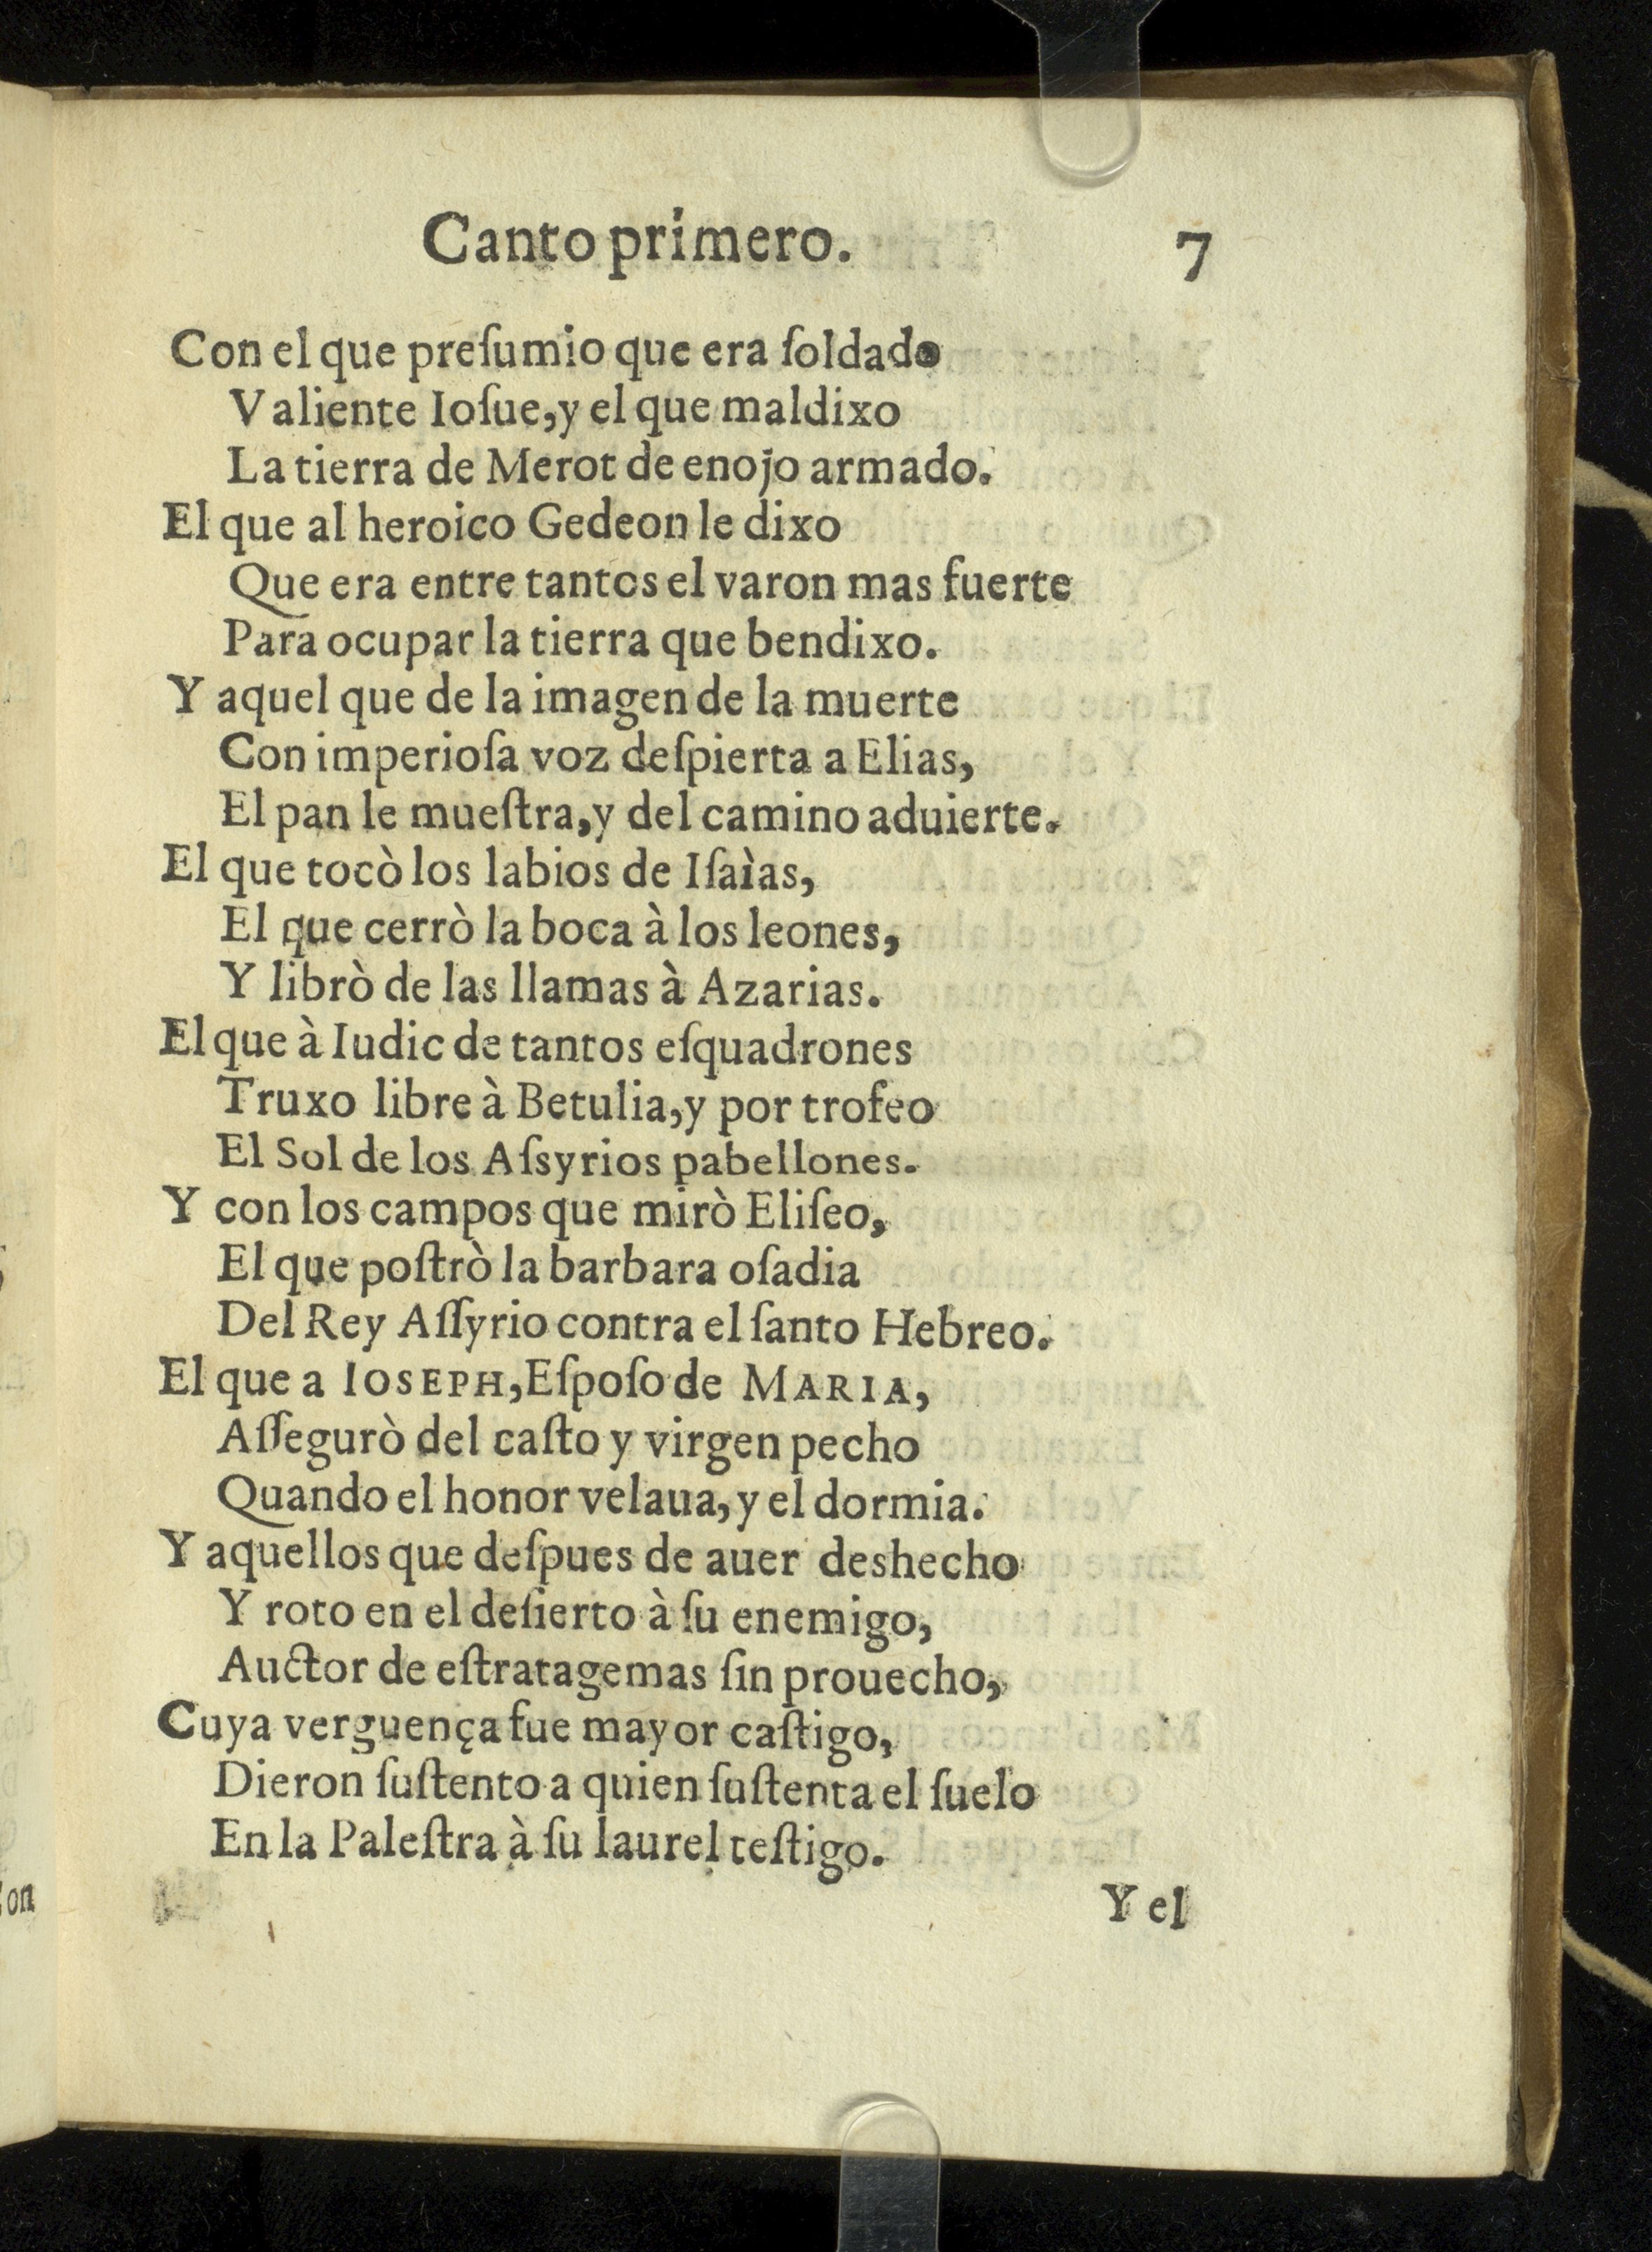 Canto primero. 7
Con el que preſumio que era ſoldado
Valiente Ioſue, y el que maldixo
La tierra de Merot de enojo armado.
El que al heroico Gedeon le dixo
Que era entre tantos el varon mas fuerte
Para ocupar la tierra que bendixo.
Y aquel que de la imagen de la muerte
Con imperioſa voz deſpierta a Elias,
El pan le mueſtra, y del camino aduierte.
El que tocò los labios de Iſaìas,
El que cerrò la boca à los leones,
Y librò de las llamas à Azarias.
El que à Iudic de tantos eſquadrones
Truxo libre à Betulia, y por trofeo
El Sol de los Aſsyrios pabellones.
Y con los campos que mirò Eliſeo,
El que poſtrò la barbara oſadia
Del Rey Aſſyrio contra el ſanto Hebreo.
El que a IOSEPH, Eſpoſo de MARIA,
Aſſegurò del caſto y virgen pecho
Quando el honor velaua, y el dormia.
Y aquellos que deſpues de auer deshecho
Y roto en el deſierto à ſu enemigo,
Auctor de eſtratagemas ſin prouecho,
Cuya verguença fue mayor caſtigo,
Dieron ſuſtento a quien ſuſtenta el ſuelo
En la Paleſtra à ſu laurel teſtigo.
Y el